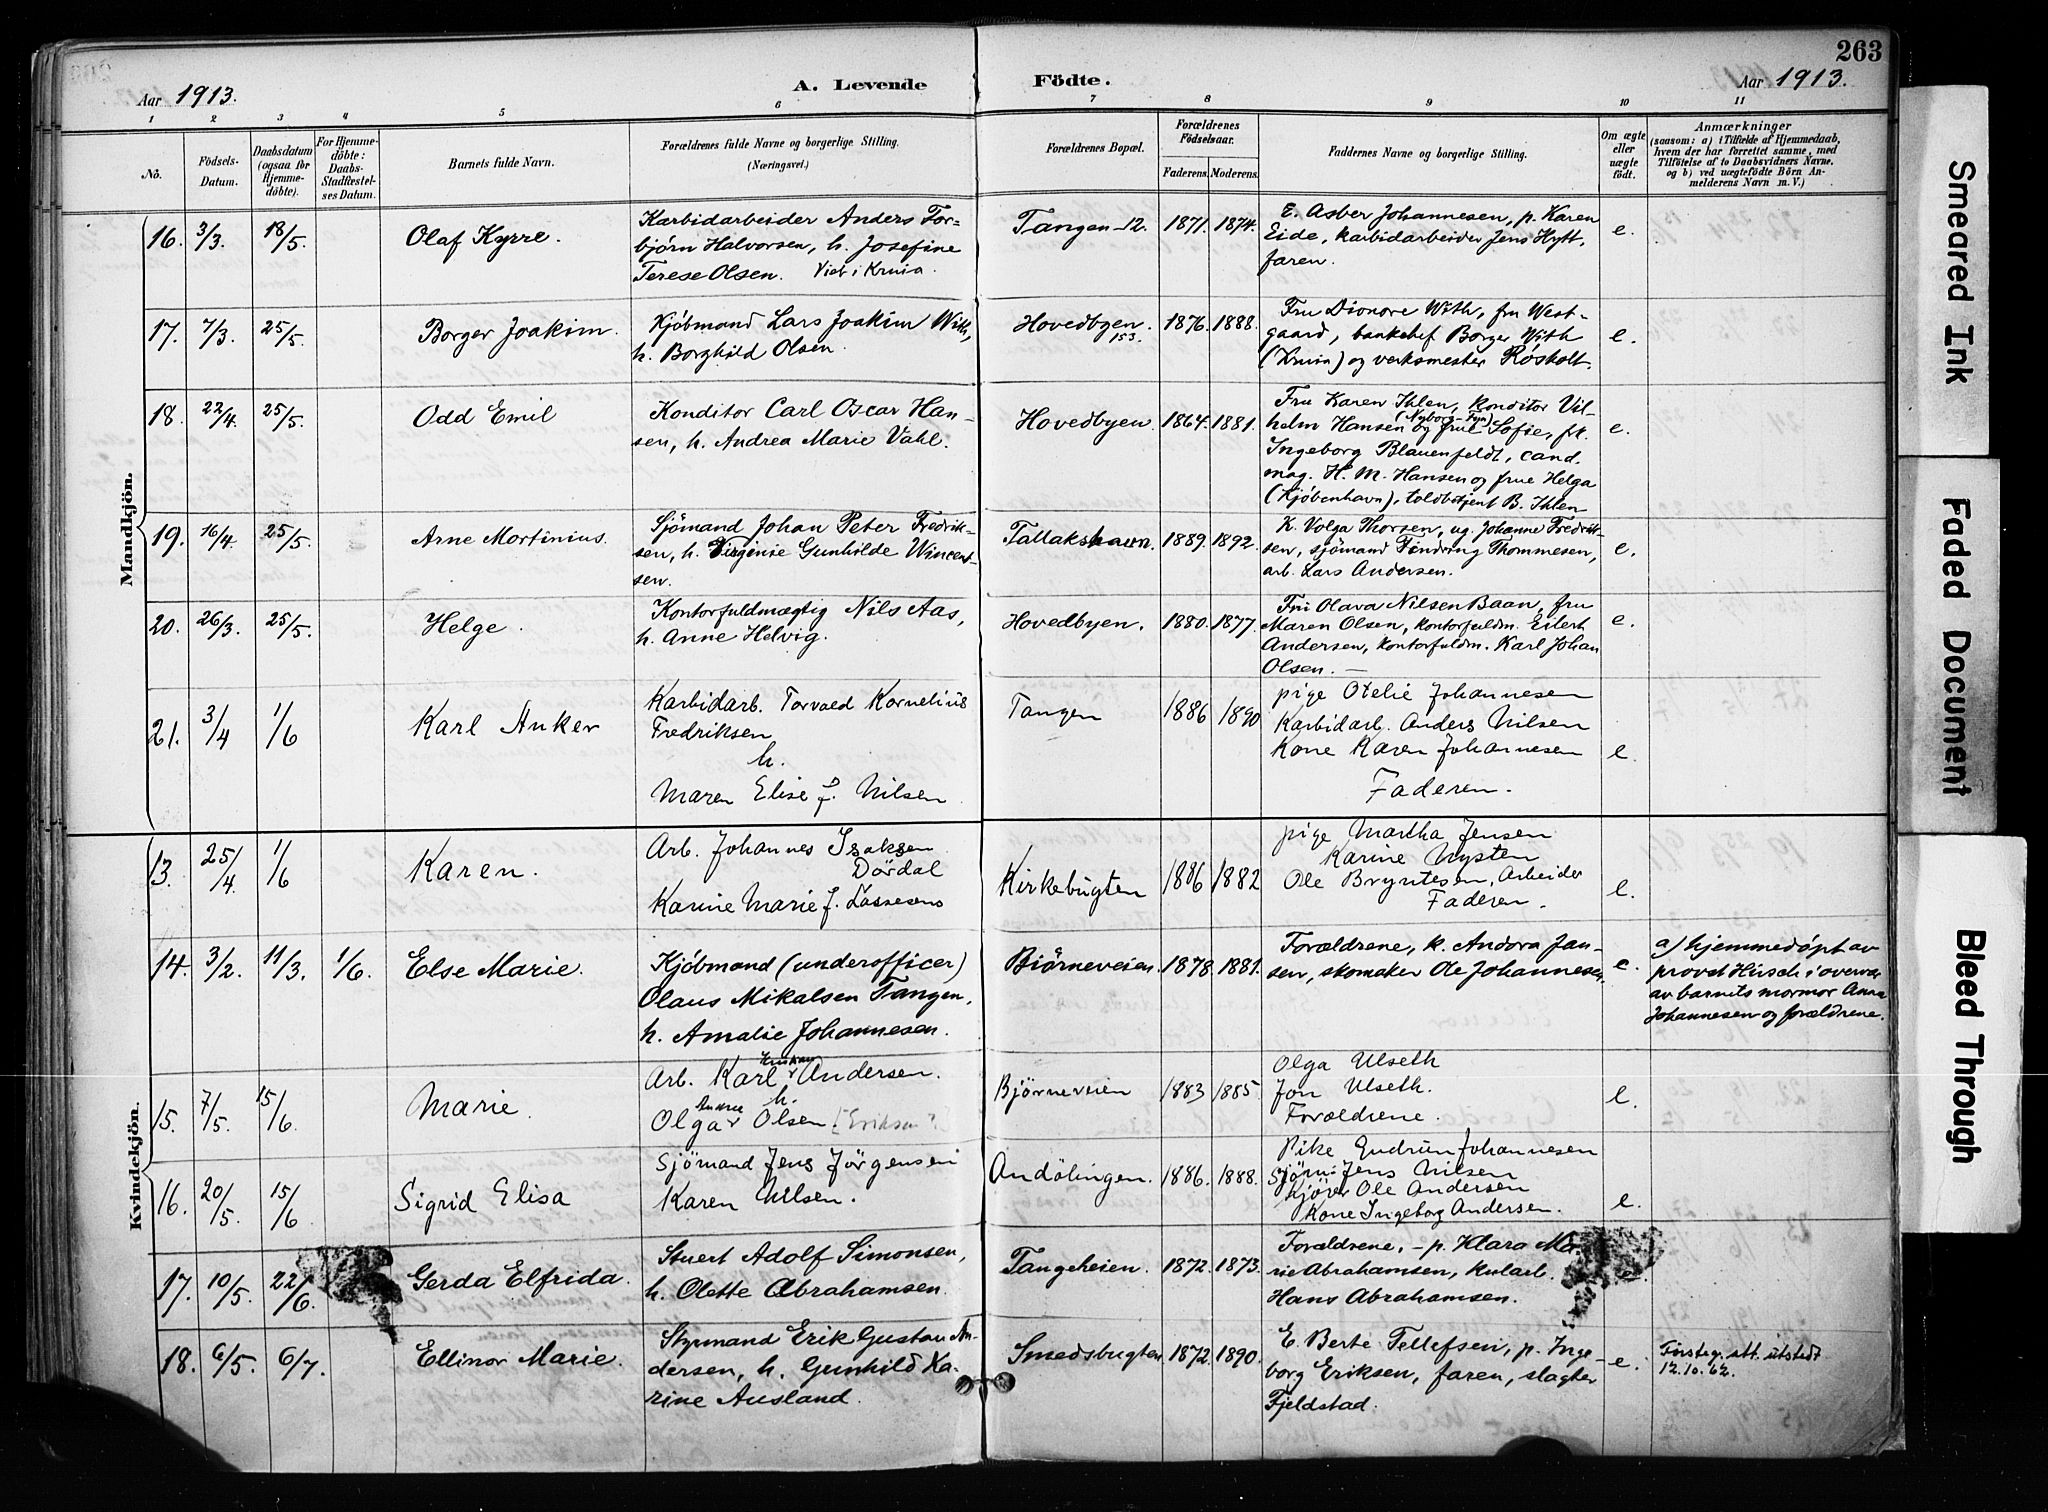 263
Aar 1913.
A. Levende Födte.
Aar 1913.
1 2 3 4 5 6 7 8 9 10 11
No.
Födsels-Datum.
Daabsdatum (ogsaa för Hjemmedöbte).
For Hjemmedöbte: Daabs-Stadfæstelses Datum.
Barnets fulde Navn.
Forældrenes fulde Navne og borgerlige Stilling.
(Næringsvei.)
Forældrenes Bopæl.
Forældrenes Födselsaar.
Faderens. Moderens.
Faddernes Navne og borgerlige Stilling.
Om ægte eller uægte födt.
Anmærkninger
(saasom: a) i Tilfælde af Hjemmedaab,
hvem der har forrettet samme, med
Tilföielse af to Daabsvidners Navne.
og b) ved uægtefödte Börn An-
melderens Navn m. V.)
Mandkjön.
16. 3/3. 18/5. Olaf Kyrre.
Karbidarbeider Anders Tor-
bjørn Halvorsen, h. Josefine
Terese Olsen. Viet i Kruia.
Tangen 12. 1871. 1874.
E. Asber Johannesen, p. Karen
Eide, karbidarbeider Jens Hytt,
faren.
e.
17. 7/3. 25/5. Borger Joakim.
Kjöbmand Lars Joakim With,
h. Borghild Olsen.
Hovedbyen. 153. 1876. 1888.
Fru Dionore With, fru West-
gaard, bankchef Borger With
(Kruia) og verksmester Røsholt.
e.
18. 22/4. 25/5. Odd Emil
Konditor Carl Oscar Han-
sen, h. Andrea Marie Vahl.
Hovedbyen 1864. 1881.
Fru Karen Ihlen, konditor Vil-
helm Hansen (Nyborg-Fyn) og frue Sofie, frk.
Ingeborg Blauenfeldt, cand.
mag. H. M. Hansen og frue Helga
(Kjöbenhavn), toldbetjent B. Ihlen
e.
19. 16/4. 25/5. Arne Mortinius.
Sjömand Johan Peter Fredrik-
sen, h. Virginie Gunhilde Wincent-
sen.
Tallakshavn. 1889. 1892.
K. Volga Thorsen, ug. Johanne Fredrik-
sen, sjömand Thommesen,
arb. Lars Andersen.
e.
20. 26/3. 25/5. Helge.
Kontorfuldmægtig Nils Aas,
h. Anne Helvig.
Hovedbyen. 1880. 1877.
Fru Olava Nilsen Baan, fru
Maren Olsen, kontorfuldm. Eilert
Andersen, kontorfuldm. Karl Johan
Olsen. —
e.
21. 3/4 1/6 Karl Anker
Karbidarb. Torvald Kornelius
Fredriksen
h.
Maren Elise f. Nilsen
Tangen 1886 1890
pige Otelie Johannesen
Karbidarb. Anders Nilsen
Kone Karen Johannesen
Faderen.
e.
Kvindekjön.
13. 25/4 1/6 Karen.
Arb. Johannes Isaksen
Dördal
Karine Marie f. Lassesens
Kirkebugten 1886 1882
pige Martha Jensen
Karine Nysten
Ole Bryntesen, Arbeider
Faderen.
e.
14. 3/2. 11/3. 1/6. Else Marie.
Kjöbmand (underofficer)
Olaus Mikalsen Tangen,
h. Amalie Johannesen.
Biörneveien 1878. 1881.
Forældrene, k. Andora Jan-
sen, skomaker Ole Johannesen.
e.
a) hjemmedöpt av
provst Hirsch i overvær
av barnets mormor Anna
Johannesen og forældrene.
15. 7/5. 15/6. Marie.
Arb. Karl Andersen.
h.
Olga Andrea Olsen [Eriksen?]
Björneveien 1883 1885.
Olga Ulseth
Jon Ulseth.
Forældrene.
e.
16. 20/5. 15/6 Sigrid Elisa
Sjömand Jens Jörgensen
Karen Nilsen.
Andölingen. 1886. 1888.
Pike Gudrun Johannesen
Sjöm. Jens Nilsen
Kjörer Ole Andersen
Kone Ingeborg Andersen.
e.
17. 10/5. 22/6. Gerda Elfrida.
Stuert Adolf Simonsen,
h. Olette Abrahamsen.
Tangeheien. 1872. 1873.
Forældrene, – p. Klara Ma-
rie Abrahamsen, kularb.
Hans Abrahamsen.
e.
18. 6/5. 6/7. Ellinor Marie.
Styrmand Erik Gustav An-
dersen, h. Gunhild Ka-
rine Ausland.
Smedsbugten 1872. 1890.
E. Berte Tellefsen, p. Inge-
borg Eriksen, faren, slagter
Fjeldstad.
e.
Förstegj. att. utstedt
12.10.62.
Smeared Ink
Faded Document
Bleed Through